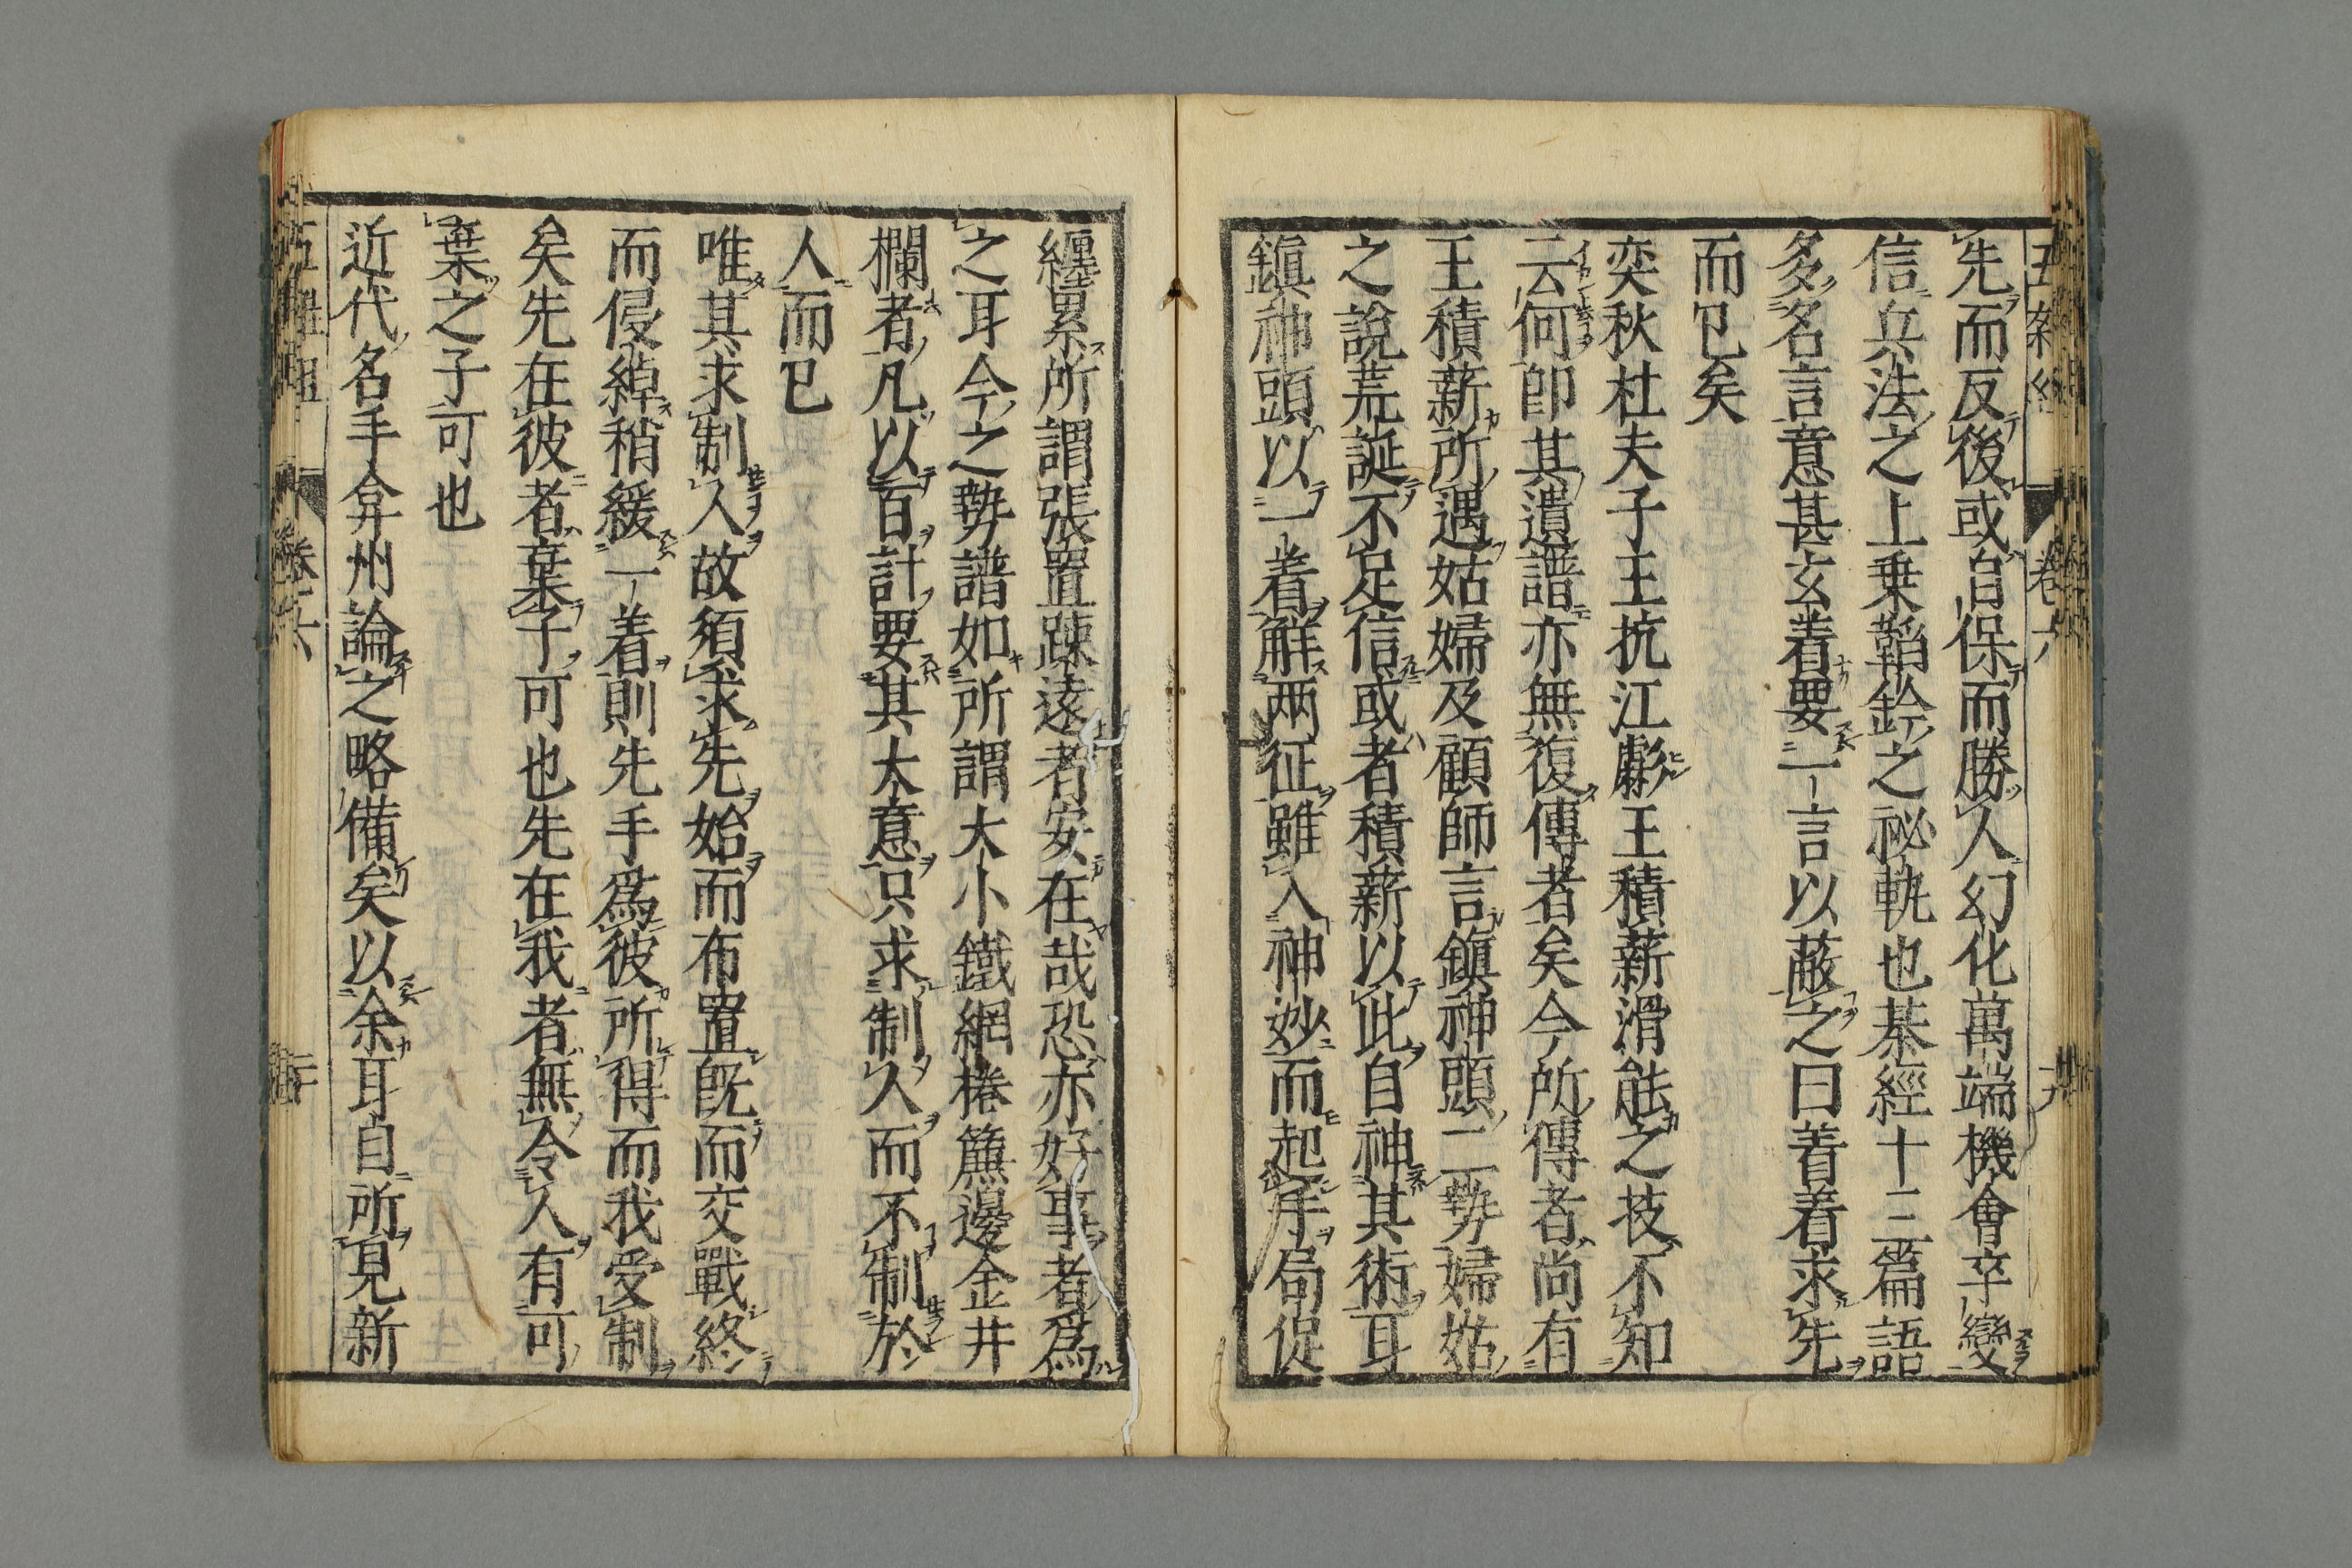 先而反後或自保而勝人幻化萬端機會卒變
信兵法之上乗鞱鈴之祕軌也棊經十三篇語
多名言意甚玄着要一言以蔽之曰着着求先
而已矣
奕秋杜夫子王抗江彪王積薪滑能之技不知
云何卽其遺譜亦無復傳者矣今所傳者尚有
王積薪所遇姑婦及顧師言鎮神頭二勢婦姑
之說荒誕不足信或者積薪以此自神其術耳
鎮神頭以一着解兩征雖入神妙而起手局促
纏累所謂張置踈遠者安在哉恐亦好事者爲
之耳今之勢譜如所謂大小鐵網捲簾邊金井
欄者凡以百計要其大意只求制人而不制於
人而已
唯其求制人故須求先始而布置旣而交戰終
而侵綽稍緩一着則先手爲彼所得而我受制
矣先在彼者棄子可也先在我者無令人有可
棄之子可也
近代名手弇州論之略備矣以余耳目所見新
五雜組 卷六